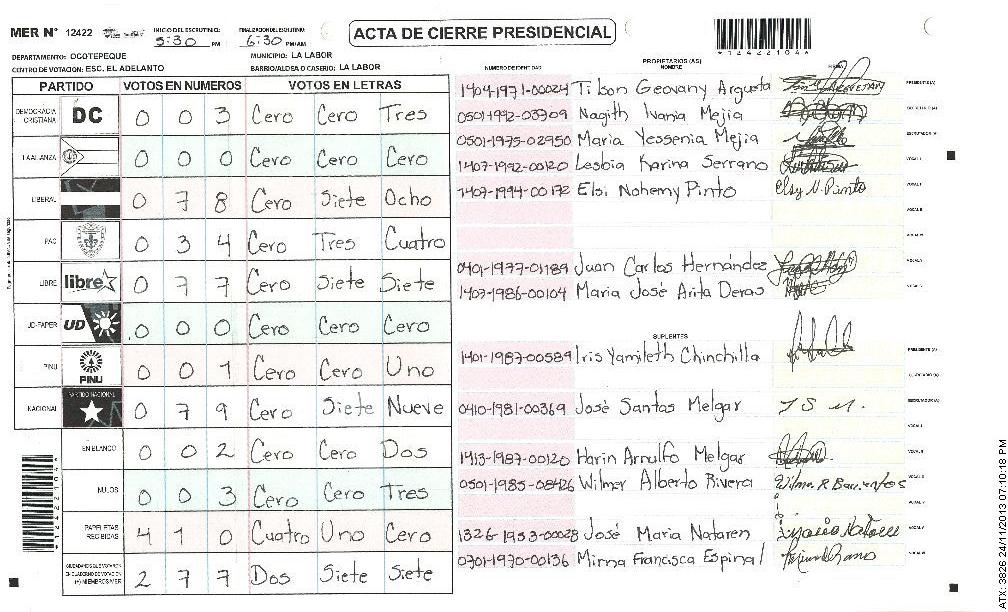 MER N° 12422 INICIO DEL ESCRUTINIO: 5:30 PM FINALIZACION DEL ESCRUTINIO: 6:30 PM/AM ACTA DE CIERRE PRESIDENCIAL *12422104*
DEPARTAMENTO: OCOTEPEQUE MUNICIPIO: LA LABOR
CENTRO DE VOTACION: ESC. EL ADELANTO BARRIO/ALDEA O CASERIO: LA LABOR
PARTIDO VOTOS EN NUMEROS VOTOS EN LETRAS
DEMOCRACIA CRISTIANA DC 0 0 3 Cero Cero Tres
LA ALIANZA 0 0 0 Cero Cero Cero
LIBERAL 0 7 8 Cero Siete Ocho
PAC 0 3 4 Cero Tres Cuatro
LIBRE libre 0 7 7 Cero Siete Siete
UD-FAPER UD 0 0 0 Cero Cero Cero
PINU PINU 0 0 1 Cero Cero Uno
NACIONAL PARTIDO NACIONAL 0 7 9 Cero Siete Nueve
EN BLANCO 0 0 2 Cero Cero Dos
NULOS 0 0 3 Cero Cero Tres
PAPELETAS RECIBIDAS 4 1 0 Cuatro Uno Cero
2 7 7 Dos Siete Siete
NUMERO DE IDENTIDAD PROPIETARIOS (AS) NOMBRE FIRMA
1404-1971-00024 Tilson Geovany Argueta PRESIDENTE(A)
0501-1992-03909 Nagith Ivania Mejia
0501-1975-02950 Maria Yessenia Mejia ESCRUTADOR(A)
1407-1992-00120 Lesbia Karina Serrano VOCAL I
1407-1994-00172 Elsi Nohemy Pinto Elsy N. Pinto
0401-1977-01189 Juan Carlos Hernández
1407-1986-00104 Maria José Arita Deras
SUPLENTES
1401-1987-00589 Iris Yamileth Chinchilla PRESIDENTE(A)
0410-1981-00369 José Santos Melgar J S M.
1413-1987-00120 Harin Arnulfo Melgar
0501-1985-08426 Wilmer Alberto Rivera
1326-1953-00028 José Maria Nataren
0701-1970-00136 Mirna Francisca Espinal
ATX: 3826 24/11/2013 07:10:18 PM